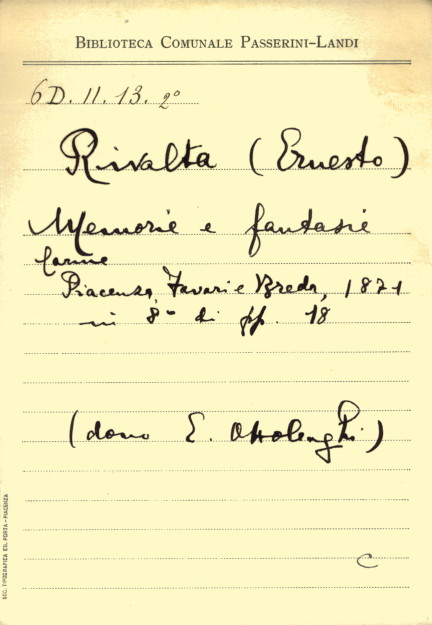 BIBLIOTECA COMUNALE PASSERINI-LANDI
6D. II. 13. 2°
Rivalta (Ernesto)
Memorie e fantasie
Carme
Piacenza, Favari e Breda, 1871
in 8° di pp. 18
(dono E. Ottolenghi)
C
SOC. TIPOGRAFICA ED. PORTA - PIACENZA